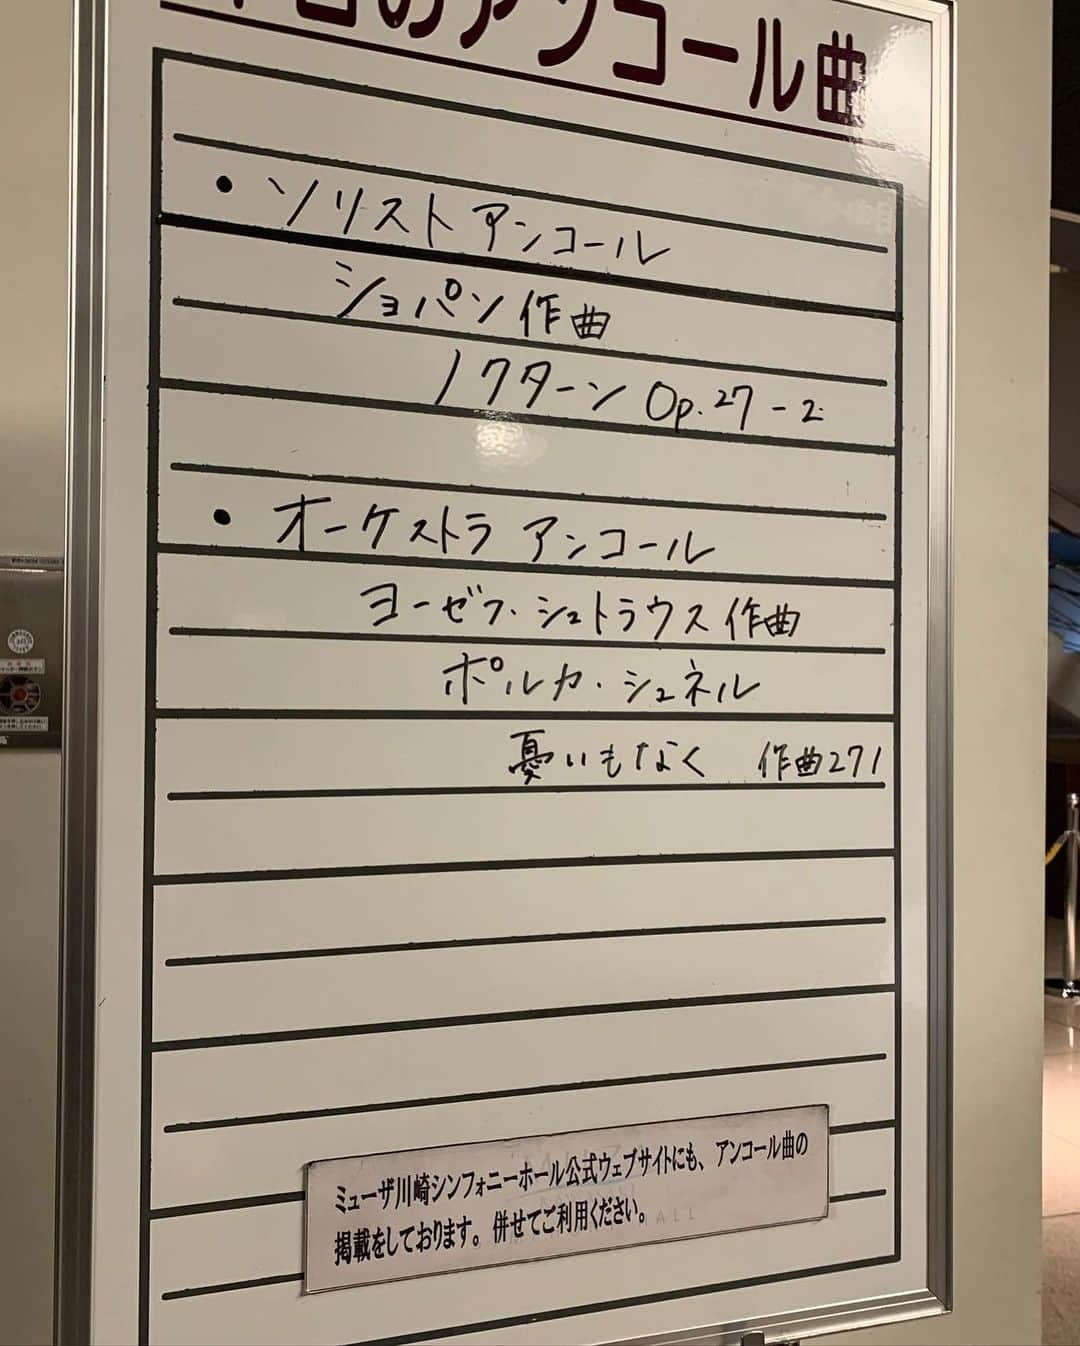 本日のアンコール曲
・ソリスト アンコール
ショパン 作曲
ノクターン Op.27-2
・オーケストラ アンコール
ヨーゼフ・シュトラウス 作曲
ポルカ・シュネル
憂いもなく 作曲271
ミューザ川崎シンフォニーホール公式ウェブサイトにも、アンコール曲の
掲載をしております。併せてご利用ください。